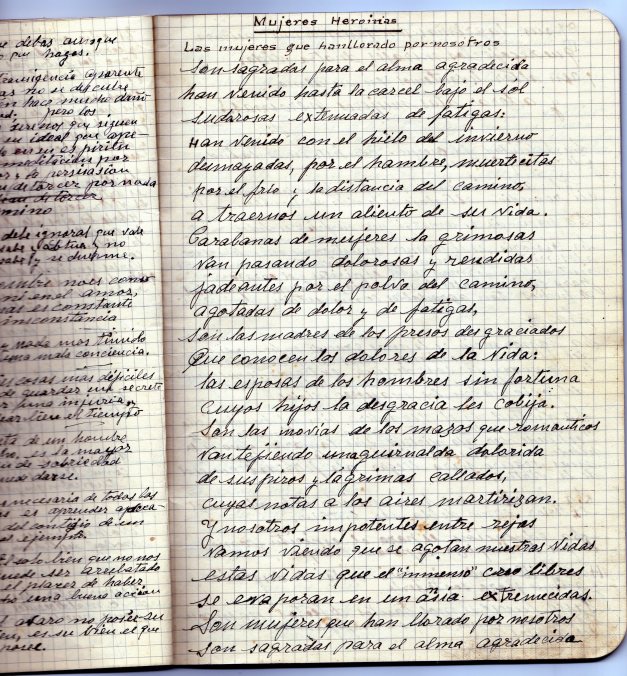 e debas aunque
o que hagas.
transigencia aparente
as no se descubre
en hace mucho daño
pero los
seres que siguen
su ideal que apre-
espiritu
meditación por
or y la persuasión
de torcer por nada
mino
debe ignorar que vale
sabe actua y no
sabe y se duerme.
mbre no es como
ni en el amor,
as es constante
inconstancia
y nada mas timido
una mala conciencia.
es cosas más dificiles
de guardar un secreto
r una injuria,
el tiempo
de un hombre
es la mayor
de sobriedad
necesaria de todas las
s es aprender a poca-
del contagio de un
ejemplo.
El solo bien que no nos
uede ser arrebatado
el placer de haber
una buena acción
l avaro no posee su
en, es su bien el que
posee.
Mujeres Heroinas
Las mujeres que hanllorado pornosotros
Son sagradas para el alma agradecida
han venido hasta la carcel bajo el sol
sudorosas extenuadas de fatigas:
Han venido con el hielo del invierno
desmayadas, por el hambre, muertecitas
por el frio y la distancia del camino,
a traernos un aliento de ser vida.
Carabanas de mujeres la grimosas
van pasando dolorosas y rendidas
jadeantes por el polvo del camino,
agotadas de dolor y de fatigas,
son las madres de los presos desgraciados
Que conocen los dolores de la Vida:
las esposas de los hombres sin fortuna
cuyos hijos la desgracia les cobija.
Son las novias de los mozos que romanticos
van tejiendo unaguirnalda dolorida
de suspiros y lagrimas callados,
cuyas notas a los aires martirizan.
Y nosotros impotentes entre rejas
vamos viendo que se agotan nuestras vidas
estas vidas que el "inmenso" creo libres
se evaporan en un asia extremecidas.
Son mujeres que han llorado por nosotros
son sagradas para el alma agradecida